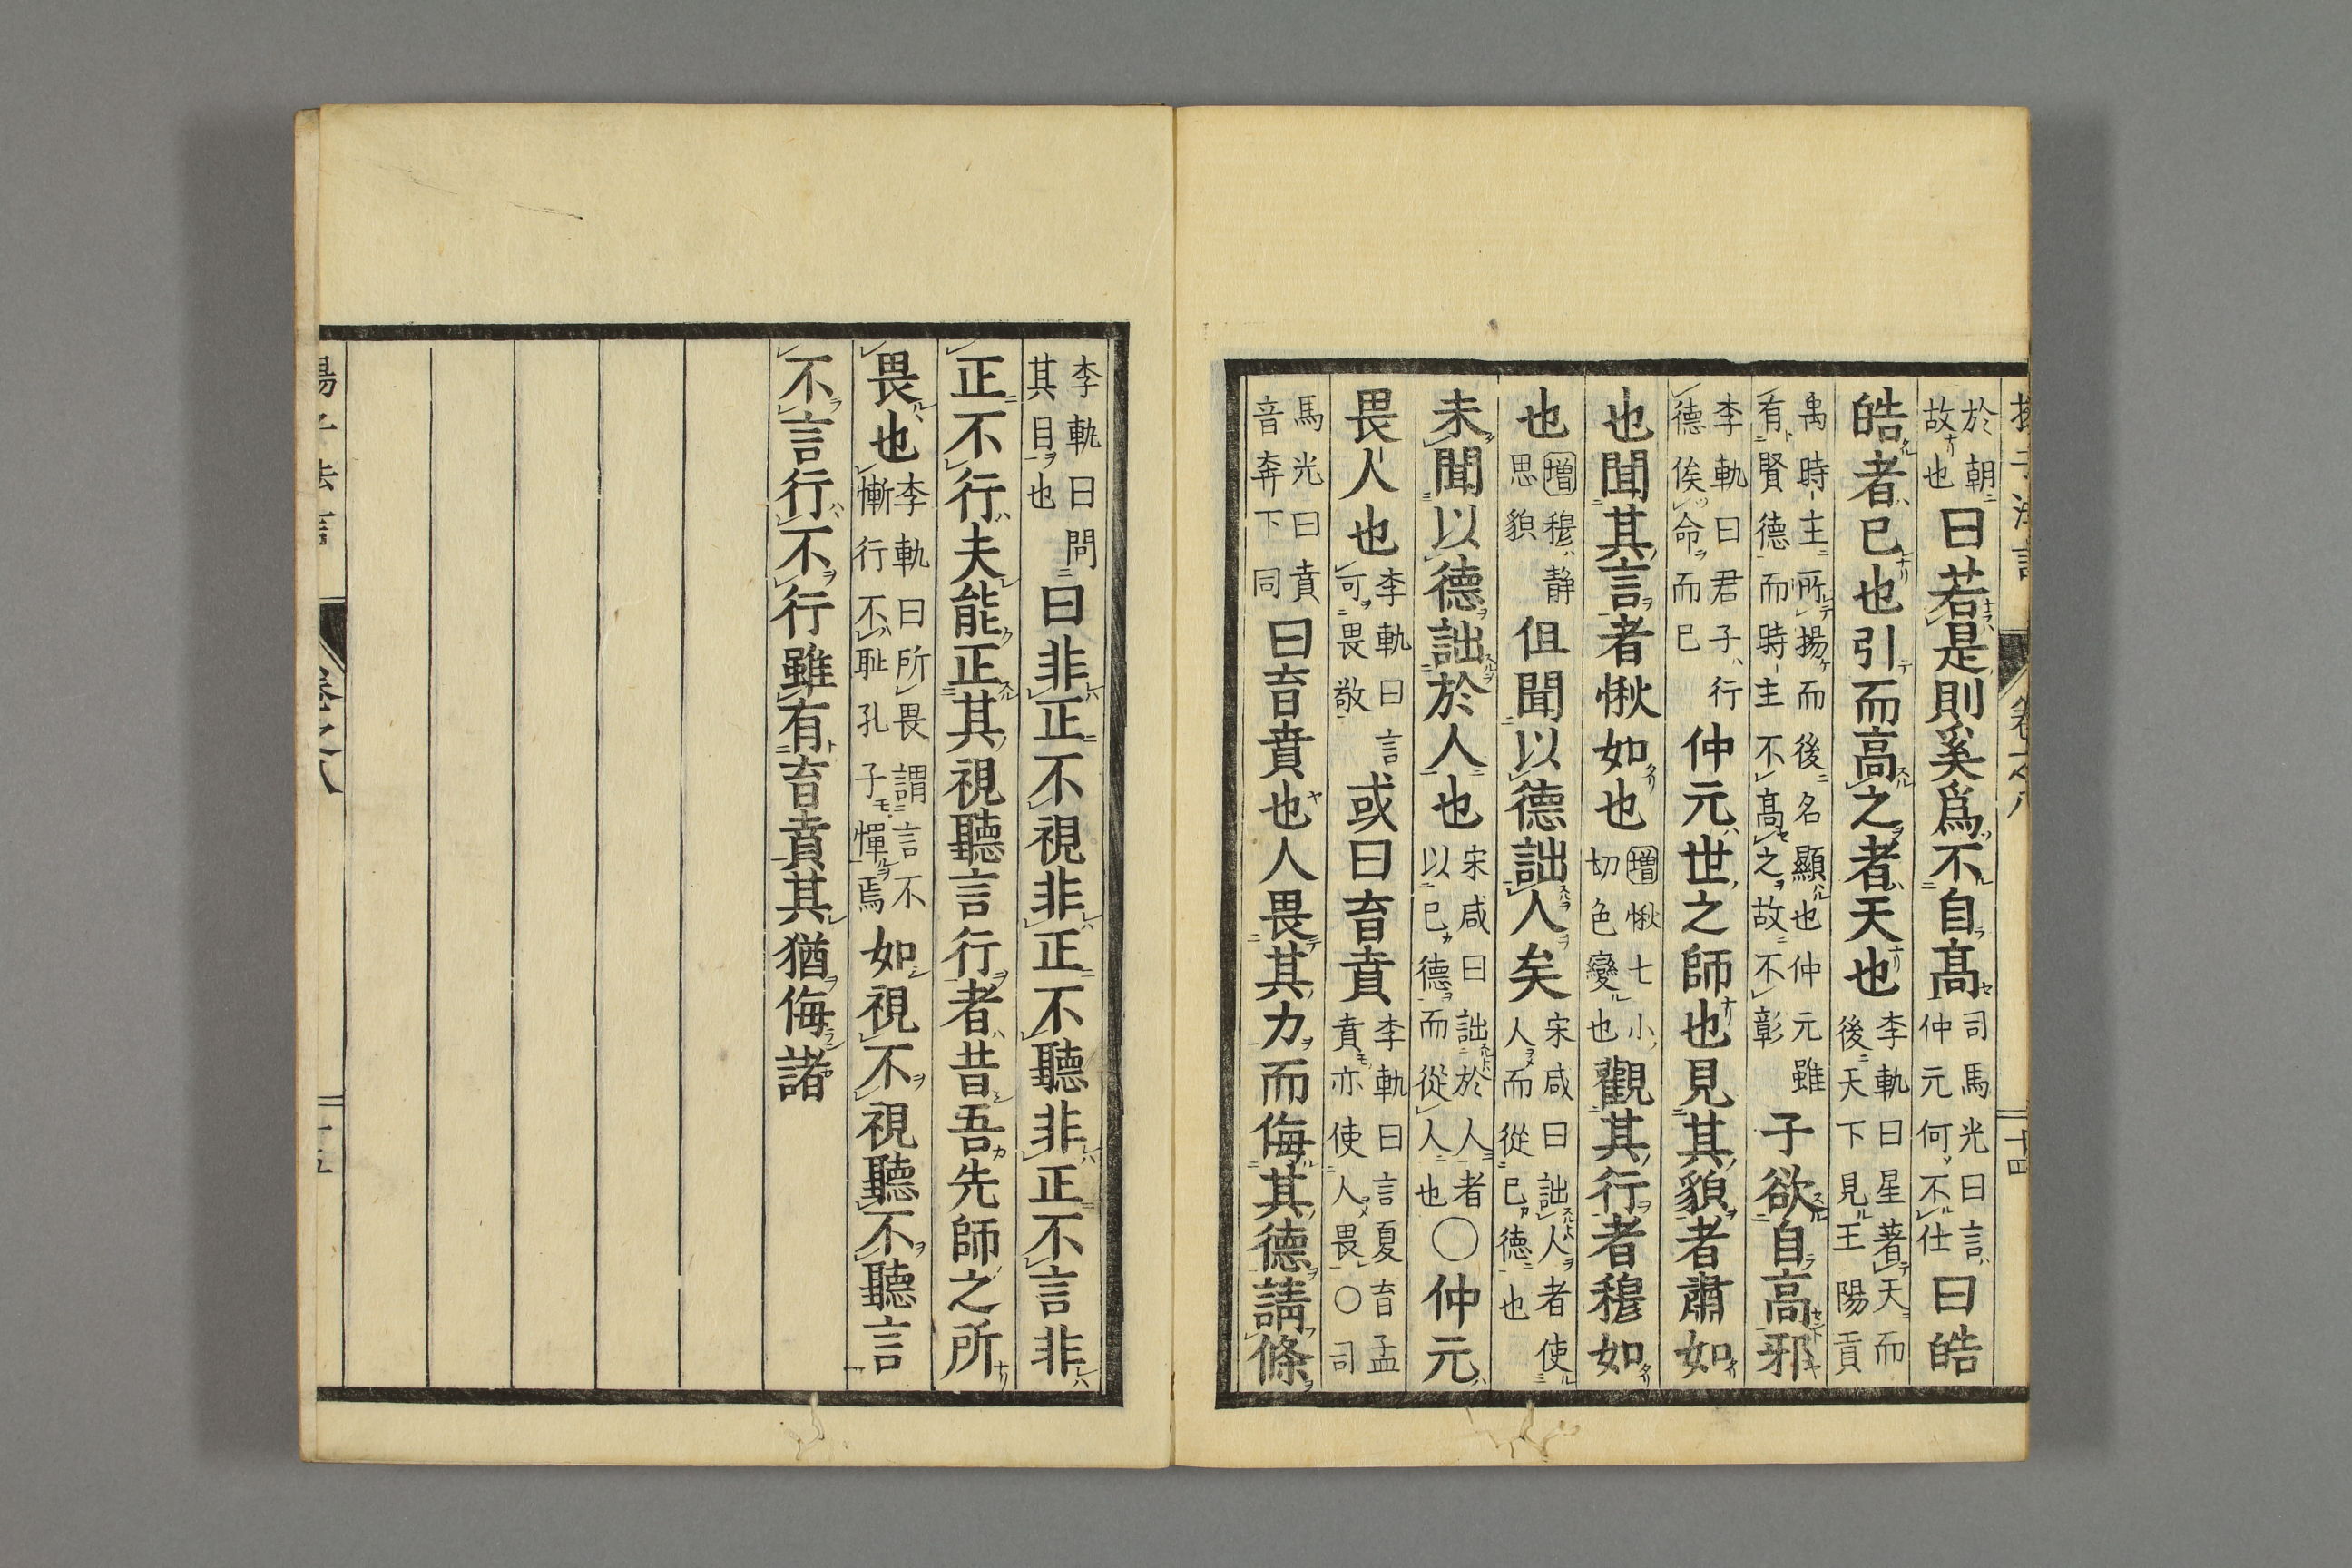 於朝故也曰若是則奚爲不自髙司馬光曰言仲元何不仕曰皓
皓者已也引而高之者天也李軌曰星著天而後天下見王陽貢
禹時主所揚而後名顯也仲元雖有賢德而時主不髙之故不彰子欲自高邪
李軌曰君子行德俟命而已仲元世之師也見其貌者肅如
也聞其言者愀如也增愀七小切色變也觀其行者穆如
也增穆静思貌伹聞以德詘人矣宋咸曰詘人者使人而從已德也
未聞以德詘於人也宋咸曰詘於人者以已德而從人也○仲元
畏人也李軌曰言可畏敬或曰育賁李軌曰言夏育孟賁亦使人畏○司
馬光曰賁音奔下同曰育賁也人畏其力而侮其德請條
李軌曰問其目也曰非正不視非正不聽非正不言非
正不行夫能正其視聽言行者昔吾先師之所
畏也李軌曰所畏謂言不慚行不恥孔子憚焉如視不視聽不聽言
不言行不行雖有育賁其猶侮諸